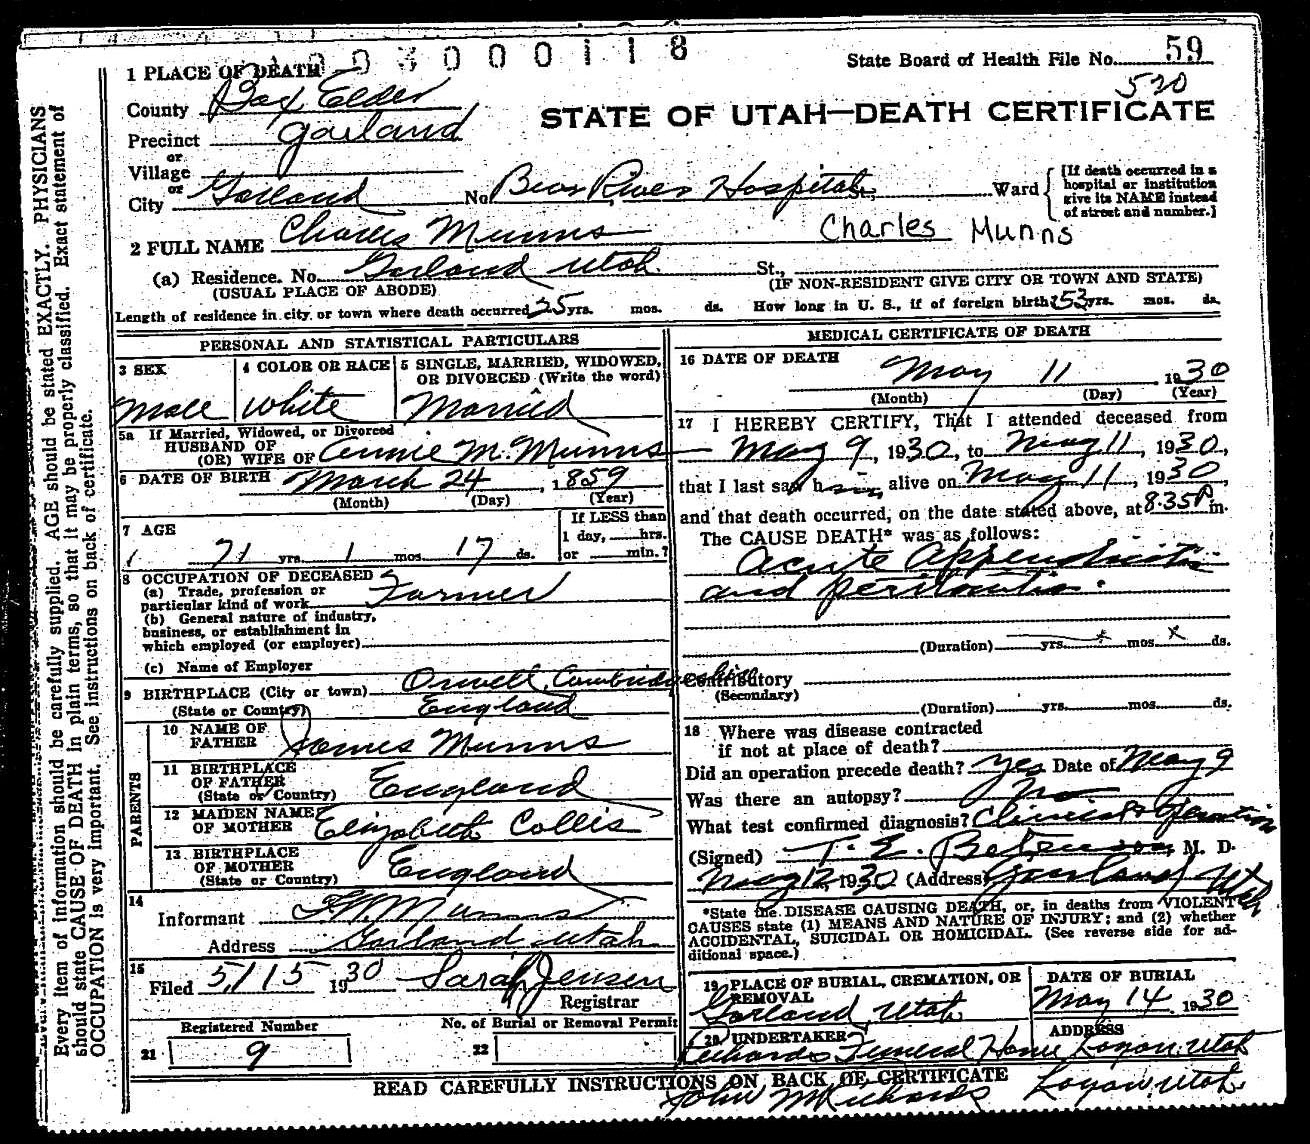 003000118
State Board of Health File No. 59
520
STATE OF UTAH—DEATH CERTIFICATE
1 PLACE OF DEATH
County Box Elder
Precinct Garland
or
Village
or
City Garland No. Bear River Hospital St., Ward
[If death occurred in a
hospital or institution
give its NAME instead
of street and number.]
2 FULL NAME Charles Munns Charles Munns
(a) Residence. No. Garland Utah. St.,
(USUAL PLACE OF ABODE) (IF NON-RESIDENT GIVE CITY OR TOWN AND STATE)
Length of residence in city or town where death occurred 25 yrs. mos. ds. How long in U. S., if of foreign birth? 53 yrs. mos. ds.
PERSONAL AND STATISTICAL PARTICULARS
3 SEX
Male
4 COLOR OR RACE
White
5 SINGLE, MARRIED, WIDOWED,
OR DIVORCED (Write the word)
Married
5a If Married, Widowed, or Divorced
HUSBAND OF
(OR) WIFE OF Annie M. Munns
6 DATE OF BIRTH March 24, 1859
(Month) (Day) (Year)
7 AGE
71 yrs. 1 mos. 17 ds.
If LESS than
1 day, hrs.
or min.?
8 OCCUPATION OF DECEASED
(a) Trade, profession or
particular kind of work Farmer
(b) General nature of industry,
business, or establishment in
which employed (or employer)
(c) Name of Employer
9 BIRTHPLACE (City or town) Orwell, Cambridgeshire
(State or Country) England
PARENTS
10 NAME OF
FATHER James Munns
11 BIRTHPLACE
OF FATHER
(State or Country) England
12 MAIDEN NAME
OF MOTHER Elizabeth Collis
13 BIRTHPLACE
OF MOTHER
(State or Country) England
14
Informant Munns
Address Garland Utah
15
Filed 5/15 1930 Sarah Jensen
Registrar
Registered Number
21 9
No. of Burial or Removal Permit
22
MEDICAL CERTIFICATE OF DEATH
16 DATE OF DEATH
May 11 1930
(Month) (Day) (Year)
17 I HEREBY CERTIFY, That I attended deceased from
May 9, 1930, to May 11, 1930,
that I last saw him alive on May 11, 1930,
and that death occurred, on the date stated above, at 8.35 P m.
The CAUSE DEATH* was as follows:
Acute Appendicitis
and peritonitis.
(Duration) yrs. mos. ds.
Contributory
(Secondary)
(Duration) yrs. mos. ds.
18 Where was disease contracted
if not at place of death?
Did an operation precede death? Yes Date of May 9
Was there an autopsy? No
What test confirmed diagnosis? Clinical & Operation
(Signed) T. E. Betenson, M. D.
May 12, 1930 (Address) Garland Utah
*State the DISEASE CAUSING DEATH, or, in deaths from VIOLENT
CAUSES state (1) MEANS AND NATURE OF INJURY; and (2) whether
ACCIDENTAL, SUICIDAL OR HOMICIDAL. (See reverse side for ad-
ditional space.)
19 PLACE OF BURIAL, CREMATION, OR
REMOVAL
Garland, Utah
DATE OF BURIAL
May 14 1930
20 UNDERTAKER
Richards Funeral Home
ADDRESS
Logan, Utah
READ CAREFULLY INSTRUCTIONS ON BACK OF CERTIFICATE
John M Richards Logan, Utah.
Every item of information should be carefully supplied. AGE should be stated EXACTLY. PHYSICIANS
should state CAUSE OF DEATH in plain terms, so that it may be properly classified. Exact statement of
OCCUPATION is very important. See instructions on back of certificate.